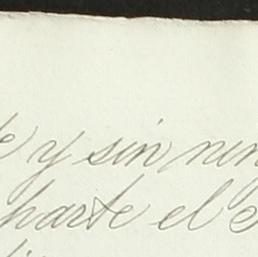 y sin nin
harte el e